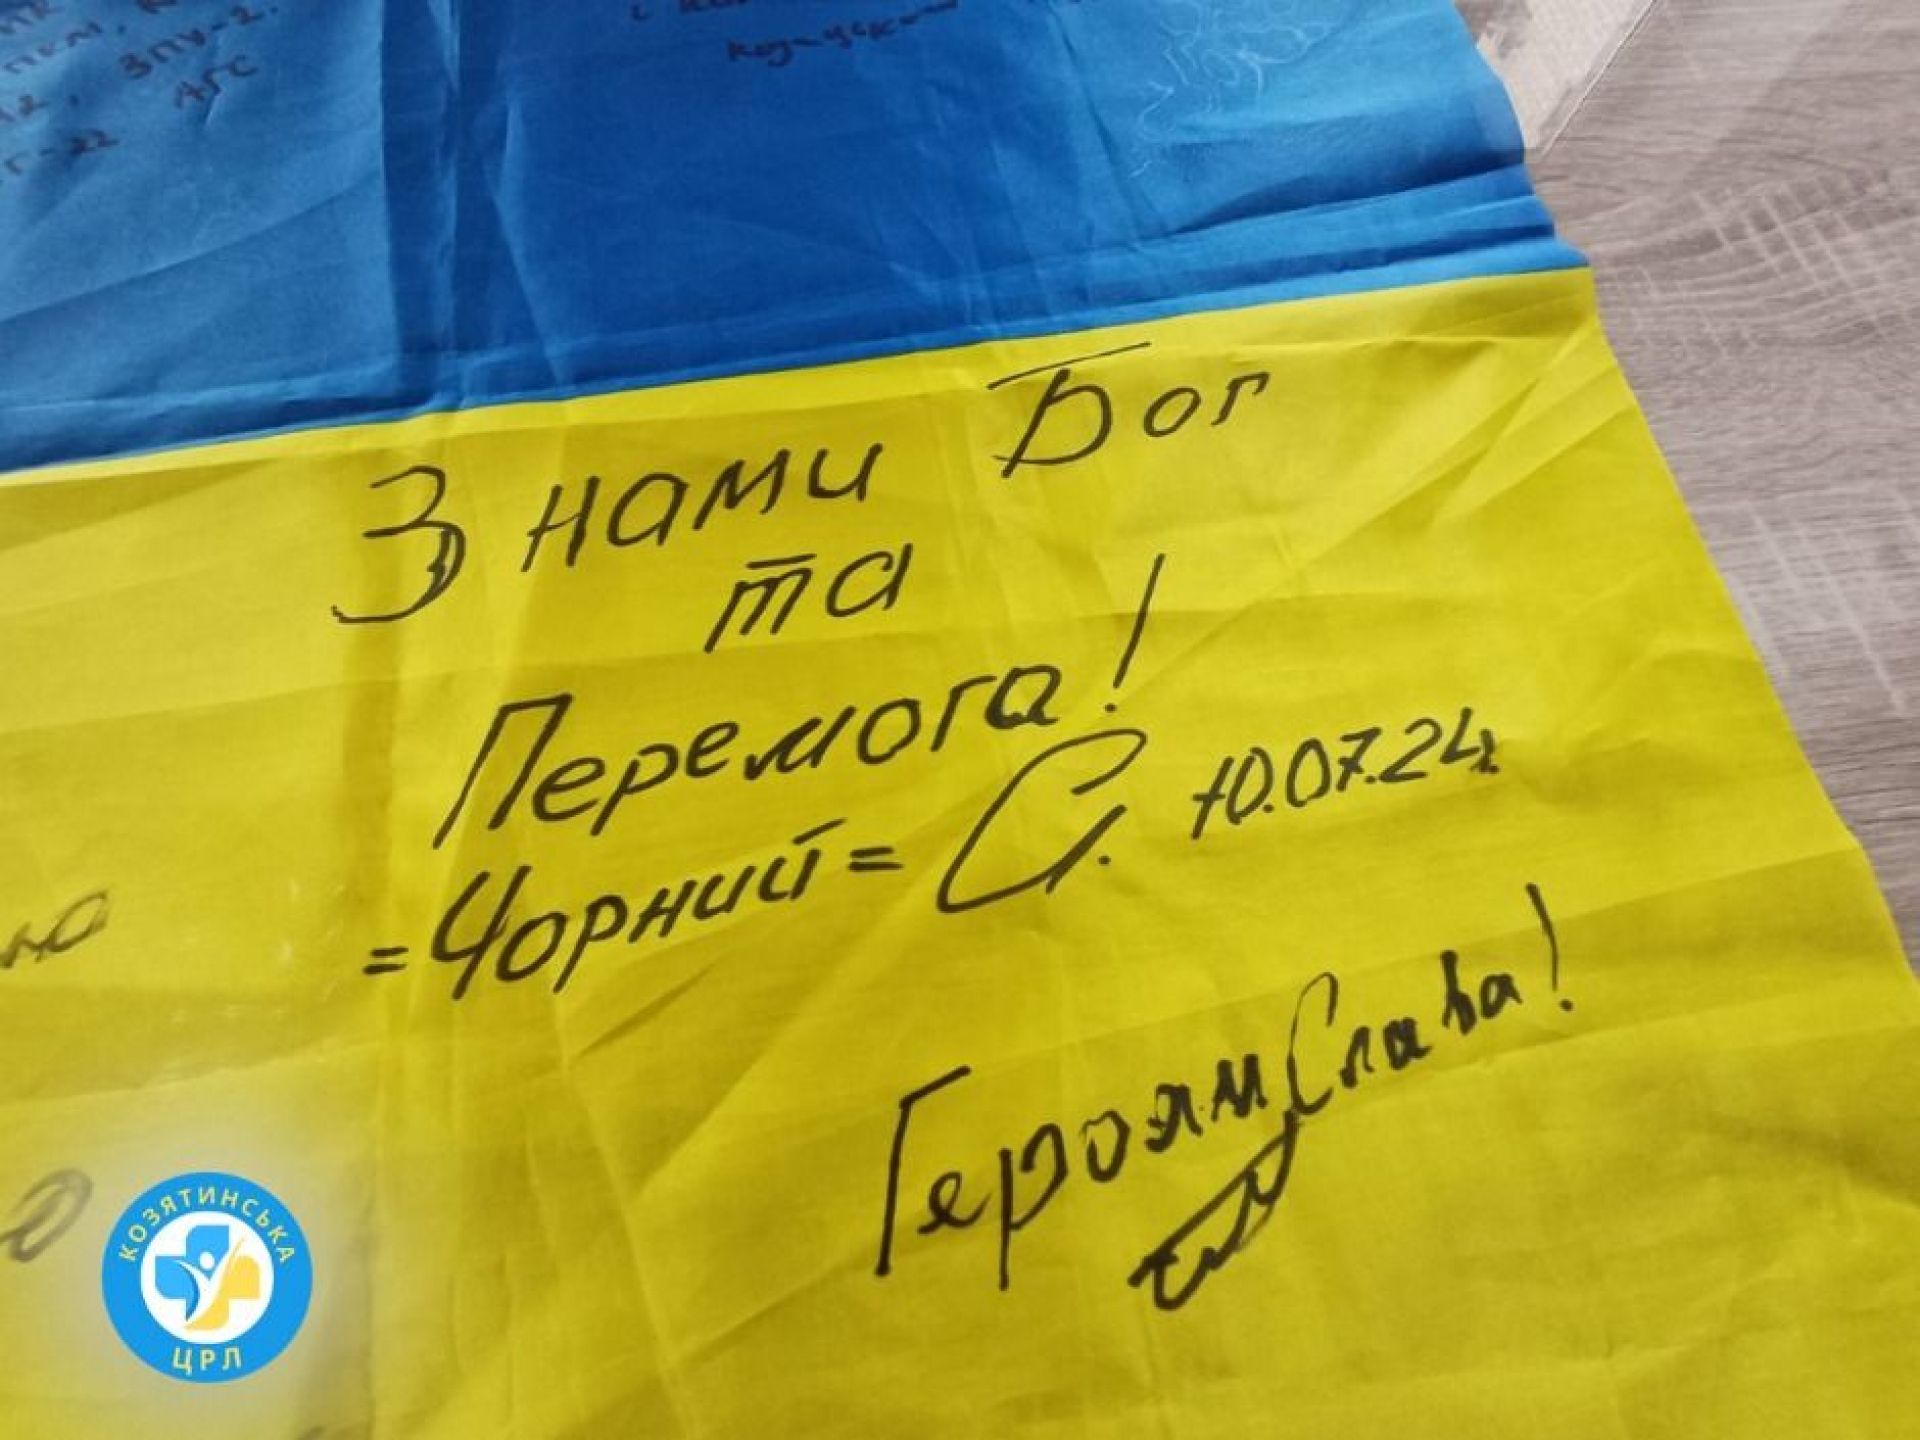 ЗПУ-2.
АГС
З нами Бог
та
Перемога!
=Чорний= С. 10.07.24р.
Героям Слава!
КОЗЯТИНСЬКА
ЦРЛ